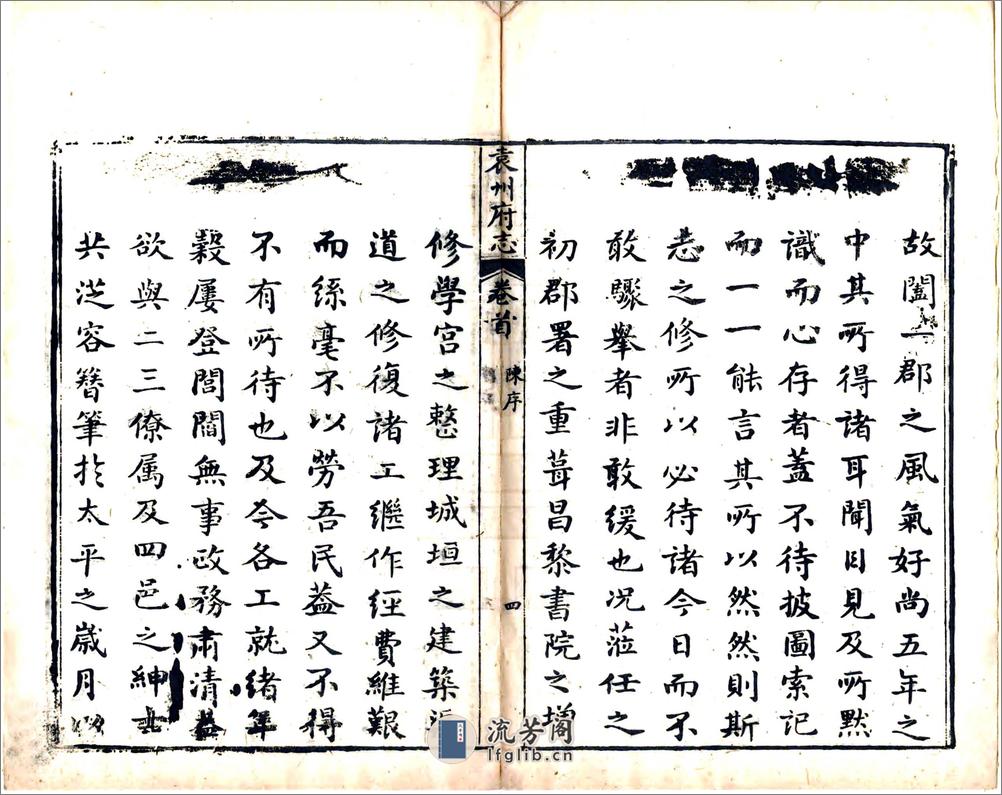 故闔一郡之風氣好尚五年之
中其所得諸耳聞目見及所默
識而心存者蓋不待披圖索記
而一一能言其所以然然則斯
志之修所以必待諸今日而不
敢驟舉者非敢緩也况蒞任之
初郡署之重葺昌黎書院之增
袁州府志
卷首
陳序
四
修學宮之整理城垣之建築
道之修復諸工繼作經費維艱
而絲毫不以勞吾民蓋又不得
不有所待也及今各工就緒年
穀屢登閭閻無事政務肅清
欲與二三僚属及四邑之紳士
共從容簪筆扵太平之歲月
流芳閣
lfglib.cn